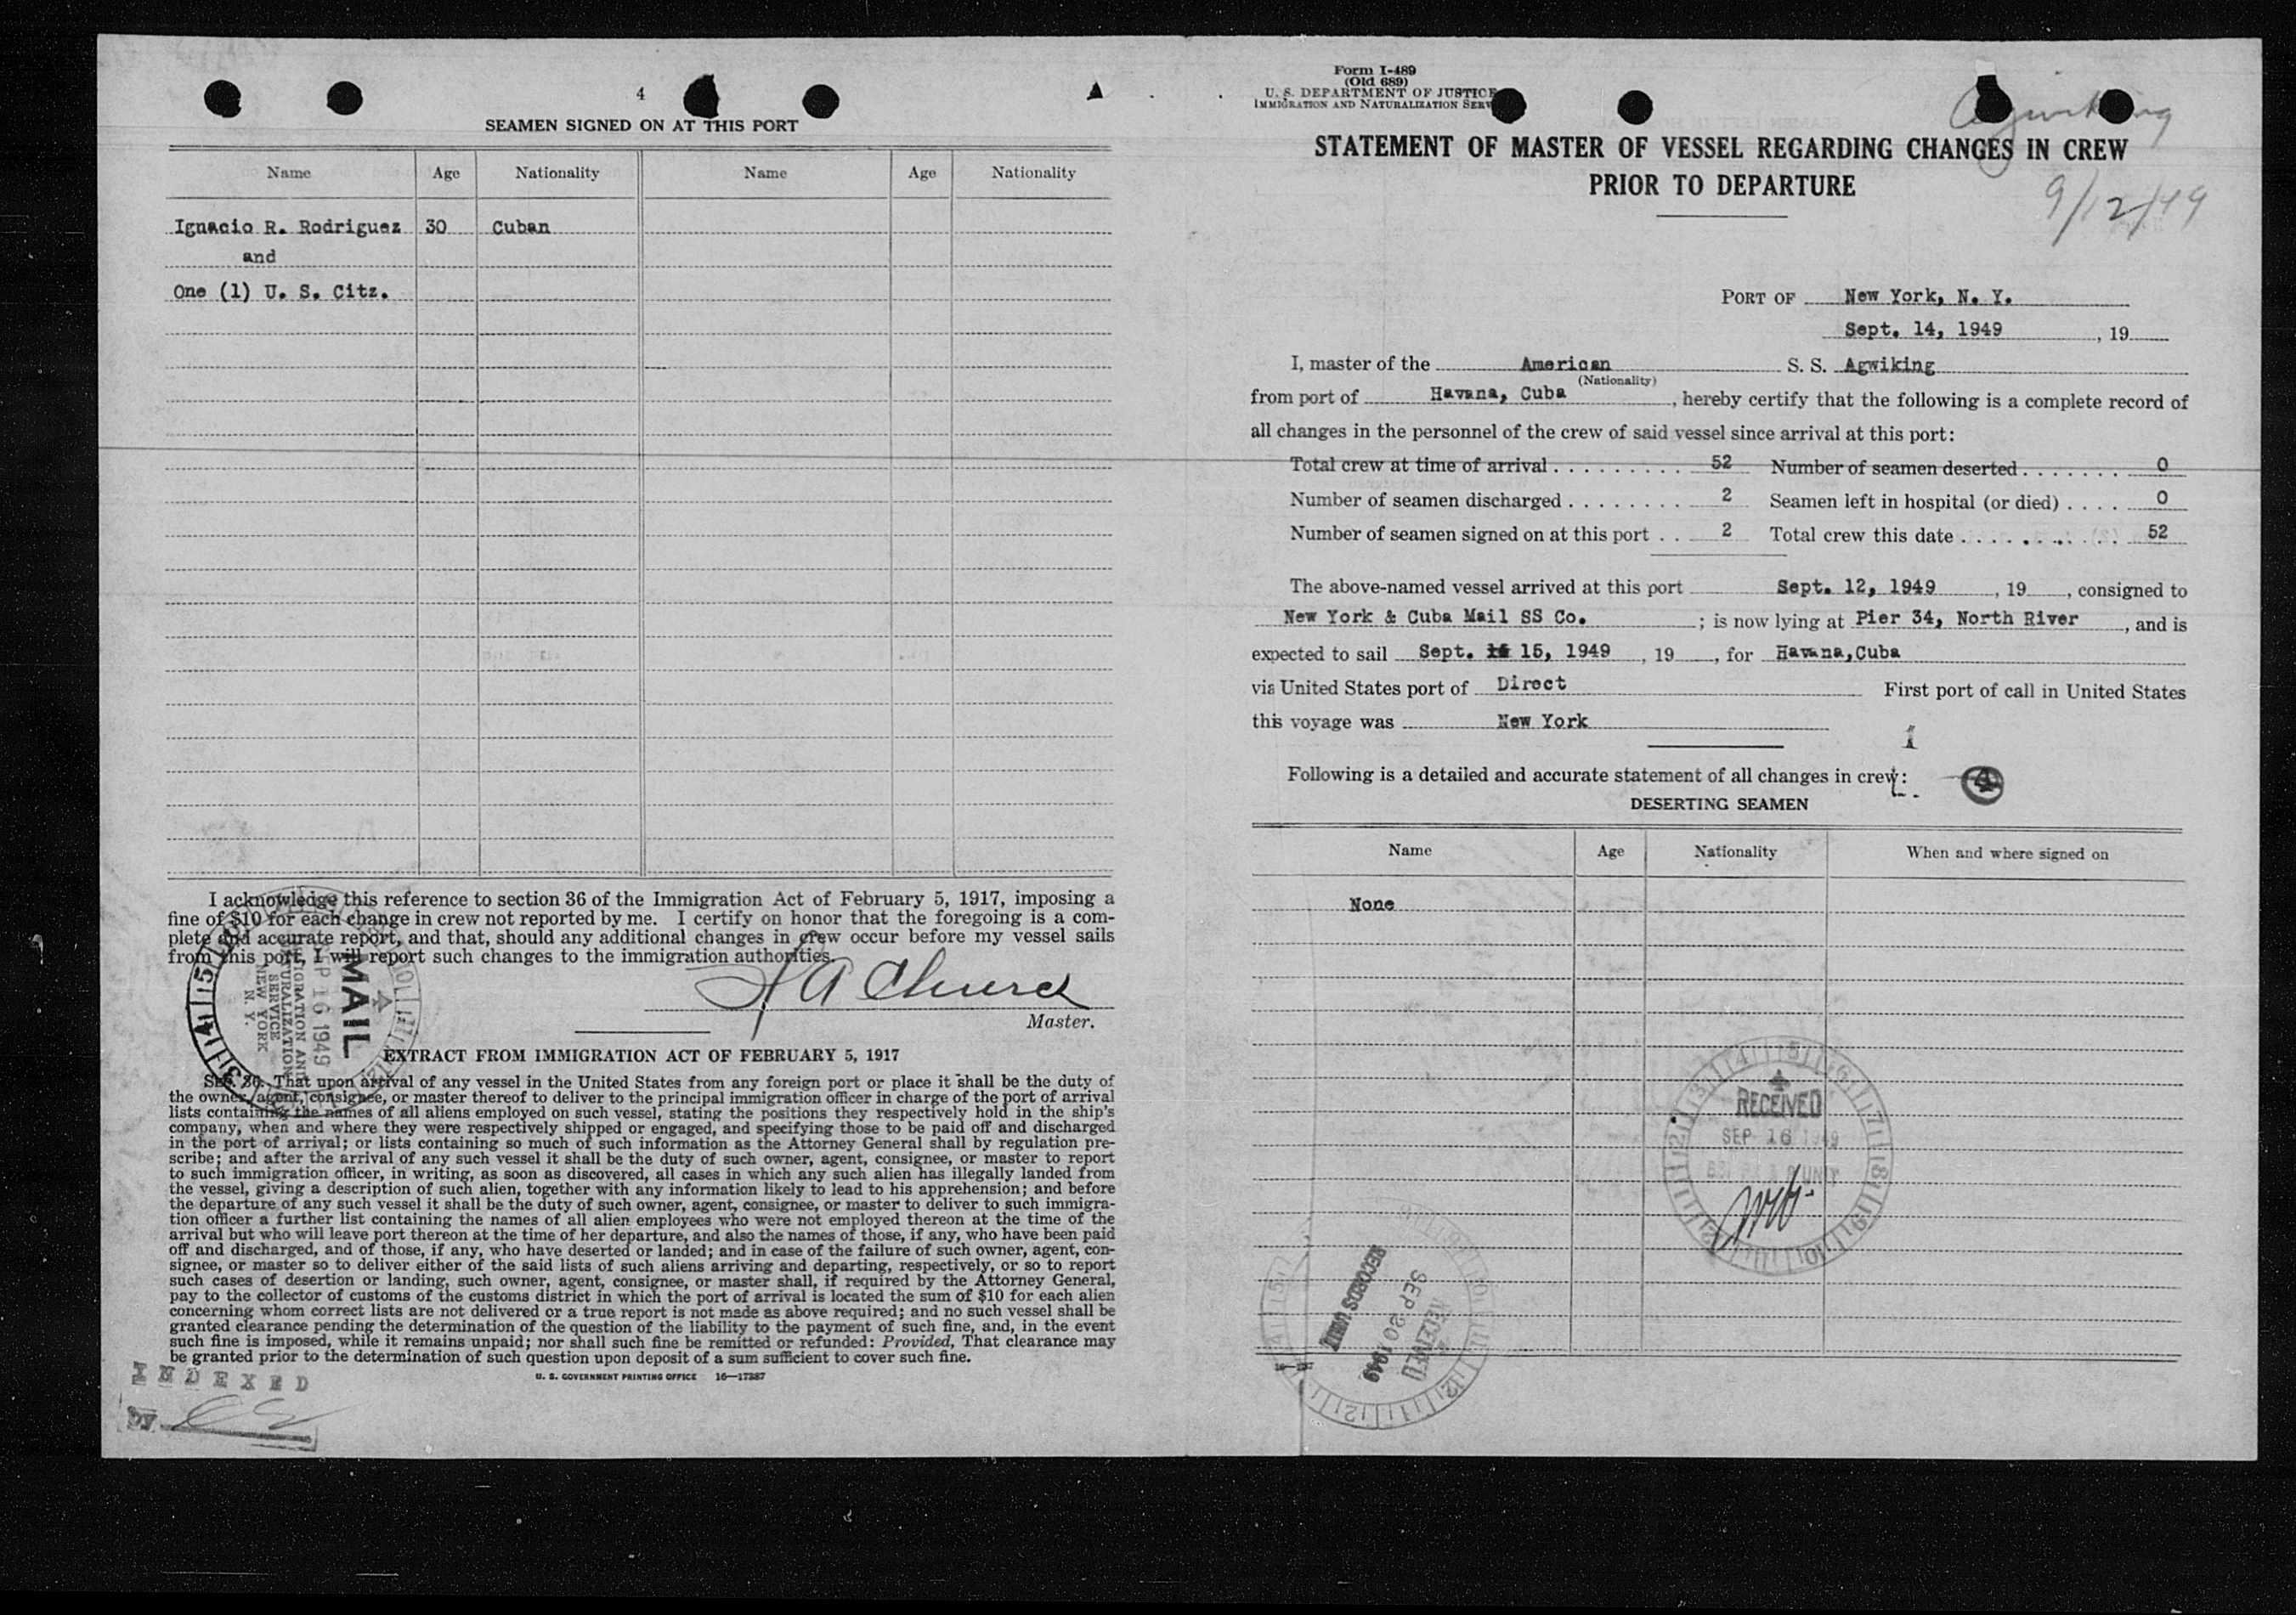 4
SEAMEN SIGNED ON AT THIS PORT
Name Age Nationality Name Age Nationality
Ignacio R. Rodriguez 30 Cuban
and
One (1) U. S. Citz.
I acknowledge this reference to section 36 of the Immigration Act of February 5, 1917, imposing a
fine of $10 for each change in crew not reported by me. I certify on honor that the foregoing is a com-
plete and accurate report, and that, should any additional changes in crew occur before my vessel sails
from this port, I will report such changes to the immigration authorities.
Master.
MAIL
SEP 16 1949
IMMIGRATION AND
NATURALIZATION
SERVICE
NEW YORK
N. Y.
EXTRACT FROM IMMIGRATION ACT OF FEBRUARY 5, 1917
SEC. 36. That upon arrival of any vessel in the United States from any foreign port or place it shall be the duty of
the owner, agent, consignee, or master thereof to deliver to the principal immigration officer in charge of the port of arrival
lists containing the names of all aliens employed on such vessel, stating the positions they respectively hold in the ship's
company, when and where they were respectively shipped or engaged, and specifying those to be paid off and discharged
in the port of arrival; or lists containing so much of such information as the Attorney General shall by regulation pre-
scribe; and after the arrival of any such vessel it shall be the duty of such owner, agent, consignee, or master to report
to such immigration officer, in writing, as soon as discovered, all cases in which any such alien has illegally landed from
the vessel, giving a description of such alien, together with any information likely to lead to his apprehension; and before
the departure of any such vessel it shall be the duty of such owner, agent, consignee, or master to deliver to such immigra-
tion officer a further list containing the names of all alien employees who were not employed thereon at the time of the
arrival but who will leave port thereon at the time of her departure, and also the names of those, if any, who have been paid
off and discharged, and of those, if any, who have deserted or landed; and in case of the failure of such owner, agent, con-
signee, or master so to deliver either of the said lists of such aliens arriving and departing, respectively, or so to report
such cases of desertion or landing, such owner, agent, consignee, or master shall, if required by the Attorney General,
pay to the collector of customs of the customs district in which the port of arrival is located the sum of $10 for each alien
concerning whom correct lists are not delivered or a true report is not made as above required; and no such vessel shall be
granted clearance pending the determination of the question of the liability to the payment of such fine, and, in the event
such fine is imposed, while it remains unpaid; nor shall such fine be remitted or refunded: Provided, That clearance may
be granted prior to the determination of such question upon deposit of a sum sufficient to cover such fine.
U. S. GOVERNMENT PRINTING OFFICE 16—17387
INDEXED
by
Form I-489
(Old 689)
U. S. DEPARTMENT OF JUSTICE
IMMIGRATION AND NATURALIZATION SERV
Agwiking
9/12/49
STATEMENT OF MASTER OF VESSEL REGARDING CHANGES IN CREW
PRIOR TO DEPARTURE
PORT OF New York, N. Y.
Sept. 14, 1949, 19
I, master of the American S. S. Agwiking
(Nationality)
from port of Havana, Cuba, hereby certify that the following is a complete record of
all changes in the personnel of the crew of said vessel since arrival at this port:
Total crew at time of arrival 52 Number of seamen deserted 0
Number of seamen discharged 2 Seamen left in hospital (or died) 0
Number of seamen signed on at this port 2 Total crew this date 52
The above-named vessel arrived at this port Sept. 12, 1949, 19, consigned to
New York & Cuba Mail SS Co.; is now lying at Pier 34, North River, and is
expected to sail Sept. 15, 1949, 19, for Havana,Cuba
via United States port of Direct First port of call in United States
this voyage was New York
Following is a detailed and accurate statement of all changes in crew:
4
DESERTING SEAMEN
Name Age Nationality When and where signed on
None
RECEIVED
SEP 16 1949
RECORDS UNIT
SEP 20 1949
RECEIVED